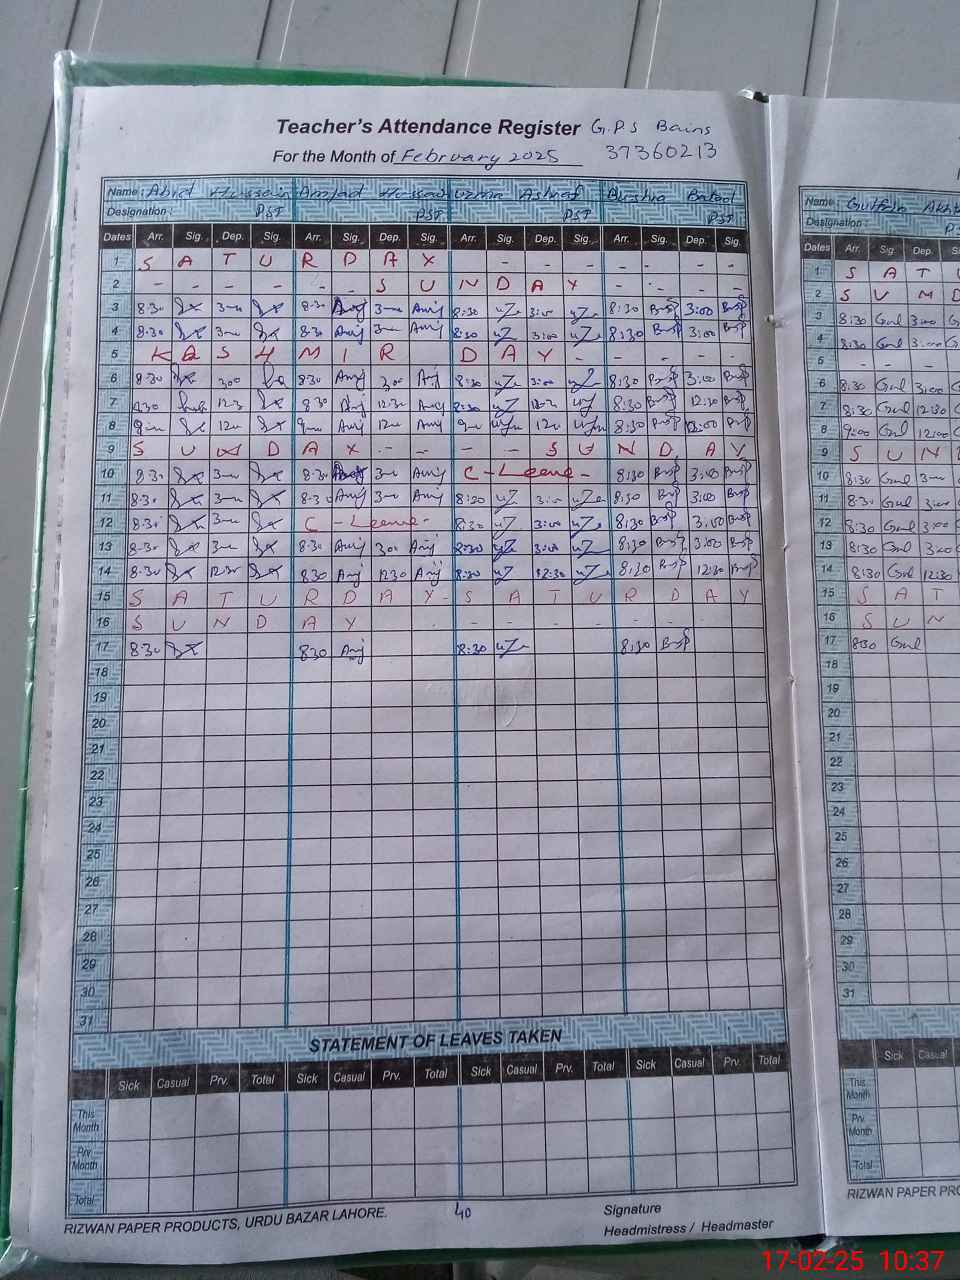 Teacher's Attendance Register G.P.S Bains
For the Month of February 2025 37360213
Name: Abid Hussain Amjad Hussain Uzma Ashraf Bushra Batool
Designation: PST PST PST PST
Dates Arr. Sig. Dep. Sig. Arr. Sig. Dep. Sig. Arr. Sig. Dep. Sig. Arr. Sig. Dep. Sig.
1 S A T U R D A Y - - - - - - -
2 - - - - - - S U N D A Y - - - -
3 8:30 8:30 Amj Amj 8:30 uZ 3:00 uZ 8:30 3:00
4 8:30 8:30 Amj Amj 8:30 uZ 3:00 uZ 8:30 3:00
5 K A S H M I R D A Y - - - - -
6 8:30 300 8:30 Amj 300 Amj 8:30 uZ 3:00 uZ 8:30 3:00
7 8:30 12:30 8:30 Amj 12:30 Amj 8:30 uZ 12:30 uZ 8:30 12:30
8 Amj Amj 8:30 12:00
9 S U N D A Y - - - - S U N D A Y
10 8:30 8:30 Amj C - Leave - 8:30 3:00
11 8:30 8:30 Amj Amj 8:30 uZ 3:00 uZ 8:30 3:00
12 8:30 C - Leave - 8:30 uZ 3:00 uZ 8:30 3:00
13 8:30 8:30 Amj 300 Amj 8:30 uZ 3:00 uZ 8:30 3:00
14 8:30 12:30 8:30 Amj 12:30 Amj 8:30 uZ 12:30 uZ 8:30 12:30
15 S A T U R D A Y - S A T U R D A Y
16 S U N D A Y - - - - - - - -
17 8:30 8:30 Amj 8:30 uZ 8:30
18
19
20
21
22
23
24
25
26
27
28
29
30
31
STATEMENT OF LEAVES TAKEN
Sick Casual Prv. Total Sick Casual Prv. Total Sick Casual Prv. Total Sick Casual Prv. Total
This Month
Prv Month
Total
RIZWAN PAPER PRODUCTS, URDU BAZAR LAHORE. 40 Signature
Headmistress / Headmaster
Name:
Designation:
Dates Arr. Sig. Dep.
1 S A T U
2 S U N D
3 8:30 Gul 3:00
4 8:30 Gul 3:00
5 - - -
6 8:30 Gul 3:00
7 8:30 Gul 12:30
8 9:00 Gul 12:00
9 S U N D
10 8:30 Gul
11 8:30 Gul 3:00
12 8:30 Gul 3:00
13 8:30 Gul 3:00
14 8:30 Gul 12:30
15 S A T
16 S U N
17 8:30 Gul
18
19
20
21
22
23
24
25
26
27
28
29
30
31
Sick Casual
This Month
Prv Month
Total
RIZWAN PAPER
17-02-25 10:37